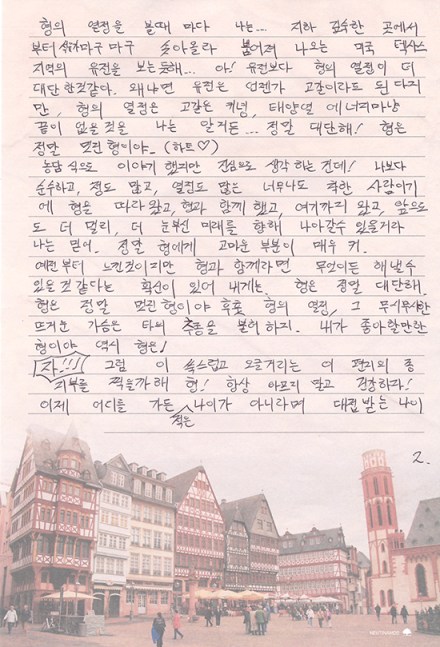 형의 열정을 볼때 마다 나는... 지하 깊숙한 곳에서
부터 마구 마구 솟아올라 뿜어져 나오는 미국 텍사스
지역의 유전을 보는듯해... 아! 유전보다 형의 열정이 더
대단한것같아. 왜냐면 유전은 언젠가 고갈이라도 된다지
만, 형의 열정은 고갈은 커녕, 태양열 에너지마냥
끝이 없을것을 나는 알거든... 정말 대단해! 형은
정말 멋진 형이야~ (하트♡)
농담 식으로 이야기 했지만 진심으로 생각 하는 건데! 나보다
순수하고, 정도 많고, 열정도 많은 너무나도 착한 사람이기
에 형을 따라왔고, 형과 함께 했고, 여기까지 왔고, 앞으로
도 더 멀리, 더 눈부신 미래를 향해 나아갈수 있을거라
나는 믿어. 정말 형에게 고마운 부분이 매우 커.
예전부터 느낀것이지만 형과 함께라면 무엇이든 해낼수
있을것 같다는 확신이 있어 내게는. 형은 정말 대단해.
형은 정말 멋진 형이야 후훗 형의 열정, 그 무시무시한
뜨거운 가슴은 타의 추종을 불허 하지. 내가 좋아할만한
형이야 역시 형은!
자!!! 그럼 이 쑥스럽고 오글거리는 이 편지의 종
지부를 찍을까해 형! 항상 아프지 말고 건강하자!
이제 어디를 가든 적은 나이가 아니라며 대접 받는 나이
2.